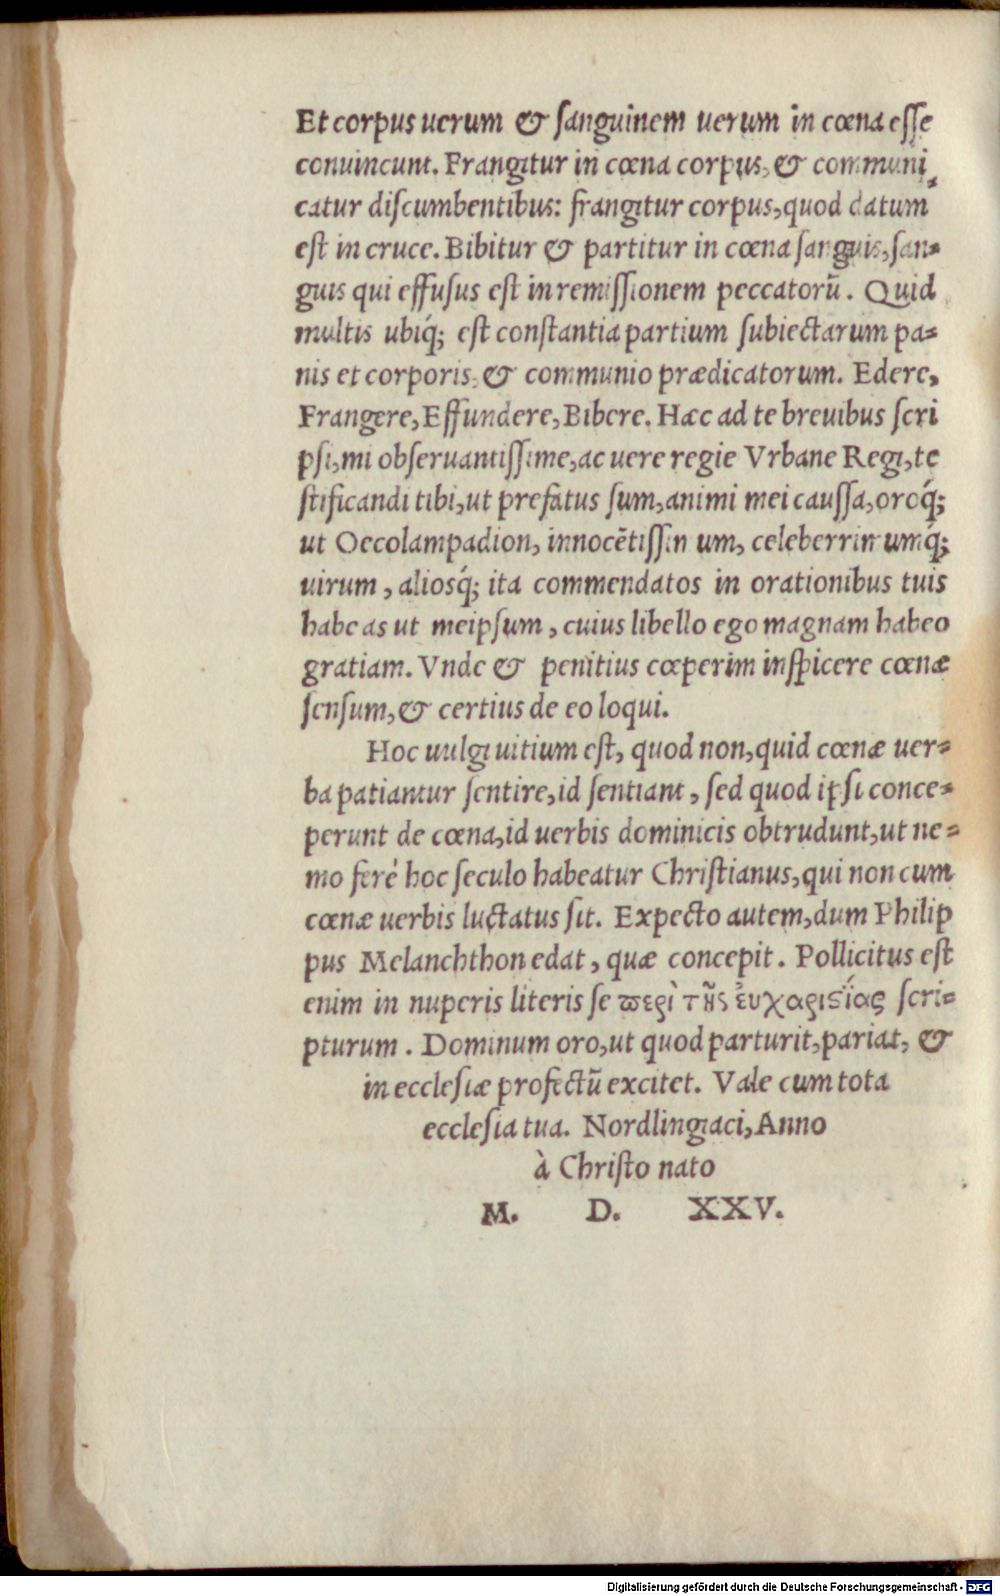 Et corpus uerum & ſanguinem uerum in cœna eſſe
conuincunt. Frangitur in cœna corpus, & communi,
catur diſcumbentibus: frangitur corpus, quod datum
eſt in cruce. Bibitur & partitur in cœna ſanguis, ſan-
guis qui effuſus eſt in remiſſionem peccatorū. Quid
multis ubiq́; eſt conſtantia partium ſubiectarum pa-
nis et corporis, & communio prædicatorum. Edere,
Frangere, Effundere, Bibere. Hæc ad te breuibus ſcri
pſi, mi obſeruantiſſime, ac uere regie Vrbane Regi, te
ſtificandi tibi, ut prefatus ſum, animi mei cauſſa, oroq́;
ut Oecolampadion, innocētiſſimum, celeberrimumq́;
uirum, aliosq́; ita commendatos in orationibus tuis
habeas ut meipſum, cuius libello ego magnam habeo
gratiam. Vnde & penitius cœperim inſpicere cœnæ
ſenſum, & certius de eo loqui.
Hoc uulgi uitium eſt, quod non, quid cœnæ uer-
ba patiantur ſentire, id ſentiant, ſed quod ipſi conce-
perunt de cœna, id uerbis dominicis obtrudunt, ut ne-
mo ferè hoc ſeculo habeatur Chriſtianus, qui non cum
cœnæ uerbis luctatus ſit. Expecto autem, dum Philip
pus Melanchthon edat, quæ concepit. Pollicitus eſt
enim in nuperis literis ſe ϖερὶ τῆς ἐυχαριϛίας ſcri-
pturum. Dominum oro, ut quod parturit, pariat, &
in eccleſiæ profectū excitet. Vale cum tota
eccleſia tua. Nordlingiaci, Anno
à Chriſto nato
M. D. XXV.
Digitalisierung gefördert durch die Deutsche Forschungsgemeinschaft - DFG